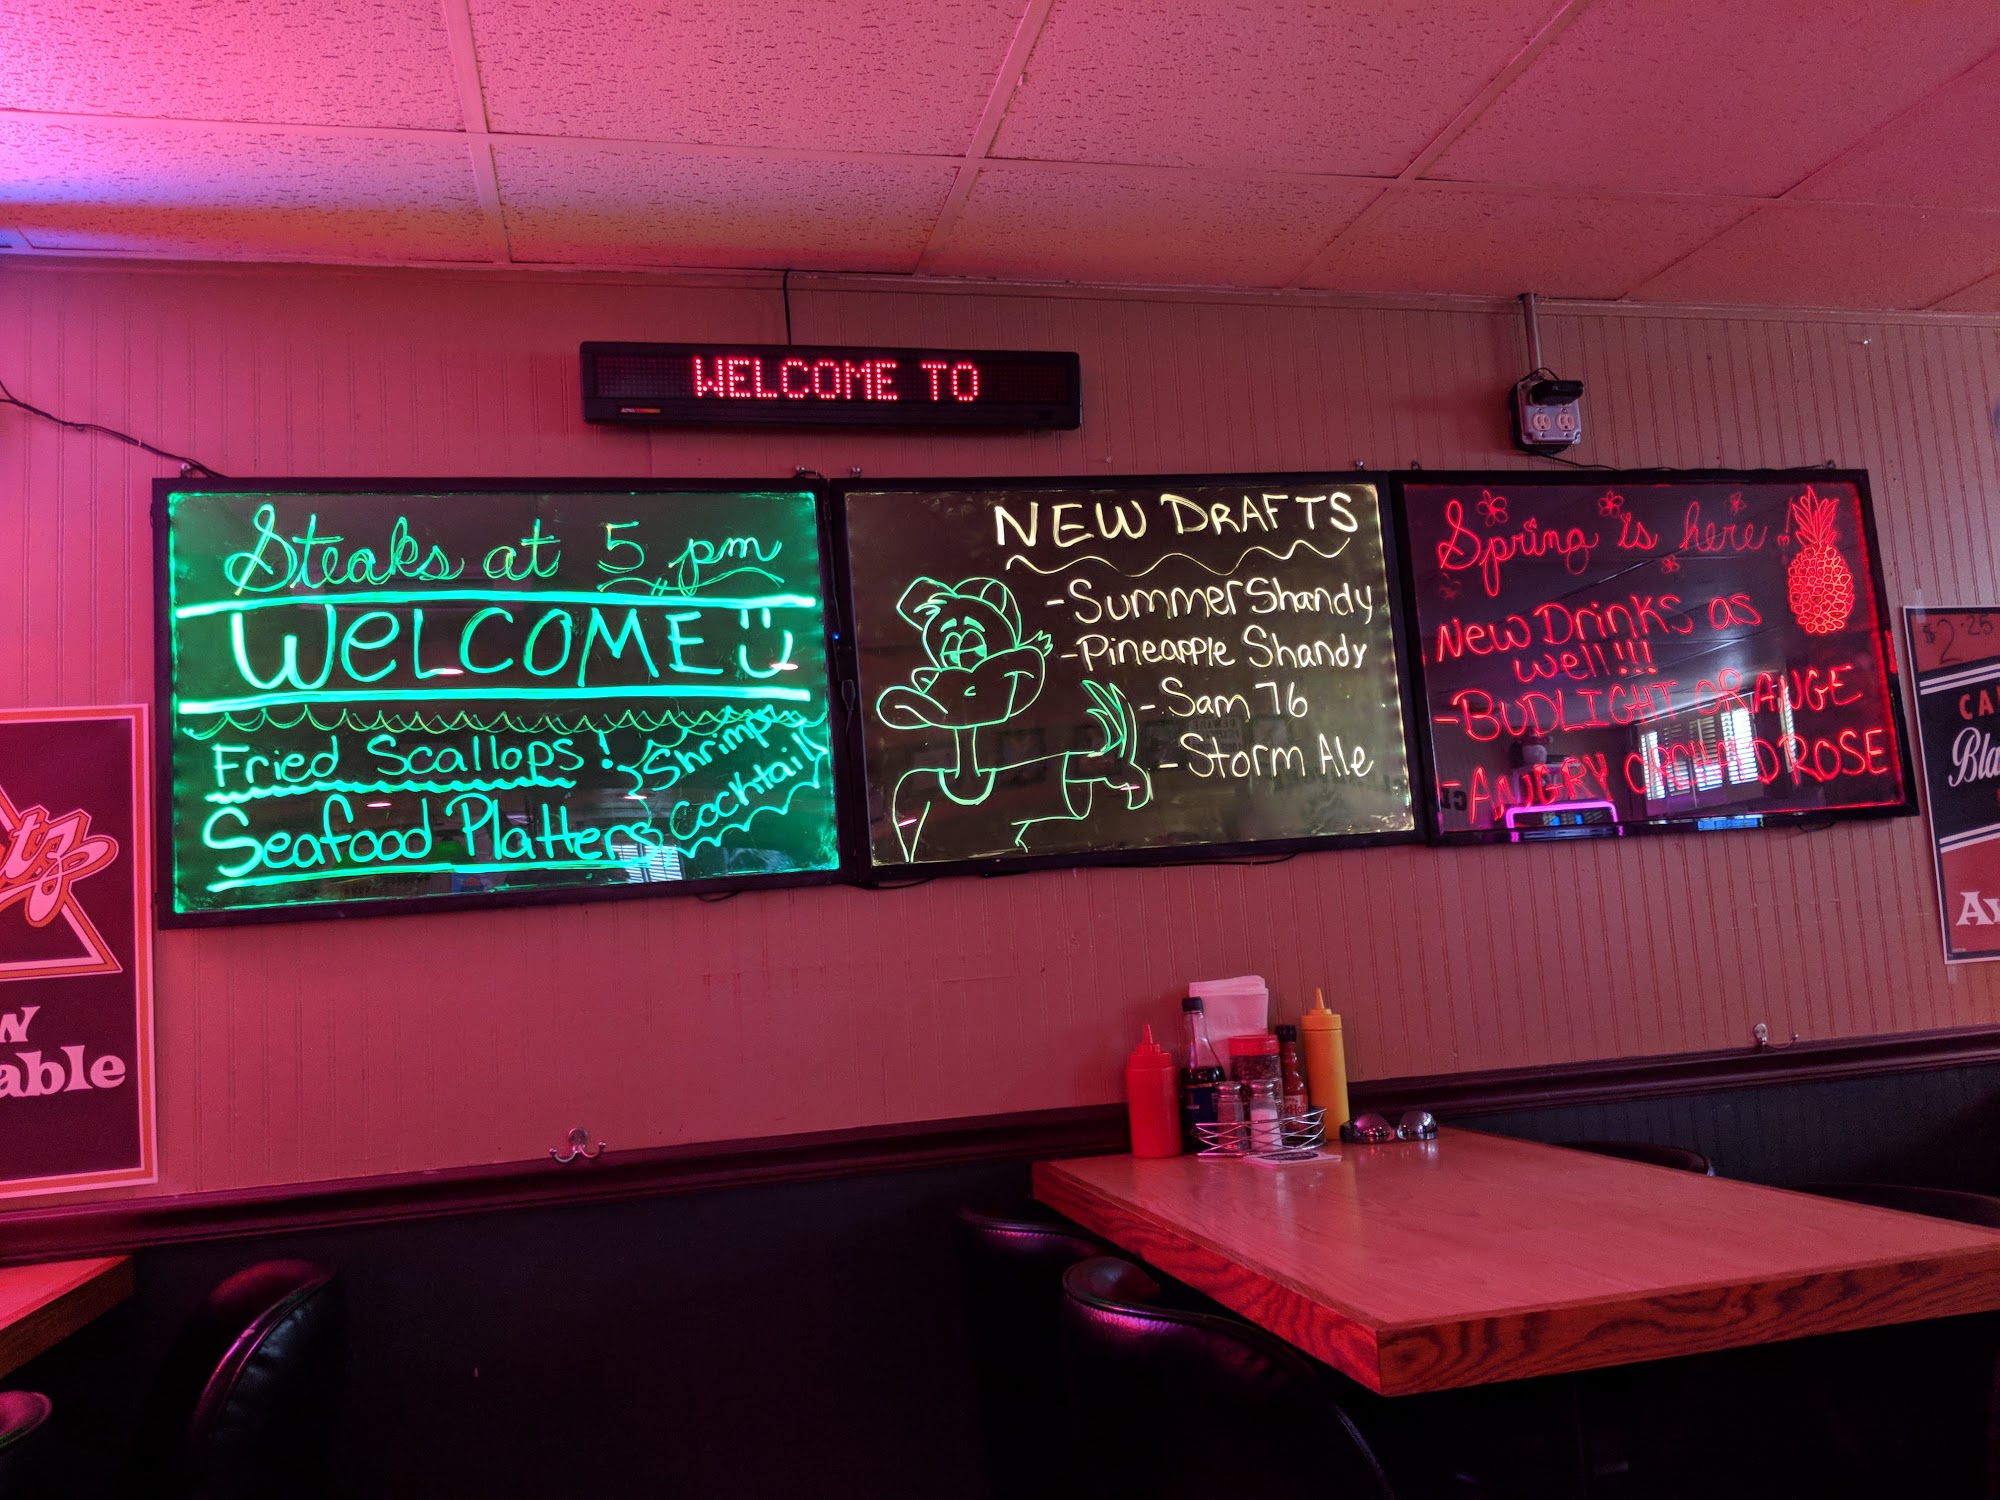 WELCOME TO
Steaks at 5 pm
WELCOME
Fried Scallops!
Seafood Platters
Shrimp
Cocktail
NEW DRAFTS
-Summer Shandy
-Pineapple Shandy
-Sam 76
-Storm Ale
Spring is here
New Drinks as
well!!!
-BUDLIGHT ORANGE
-ANGRY ORCHARD ROSE
$2.25
CA
Bla
Av
tz
w
able